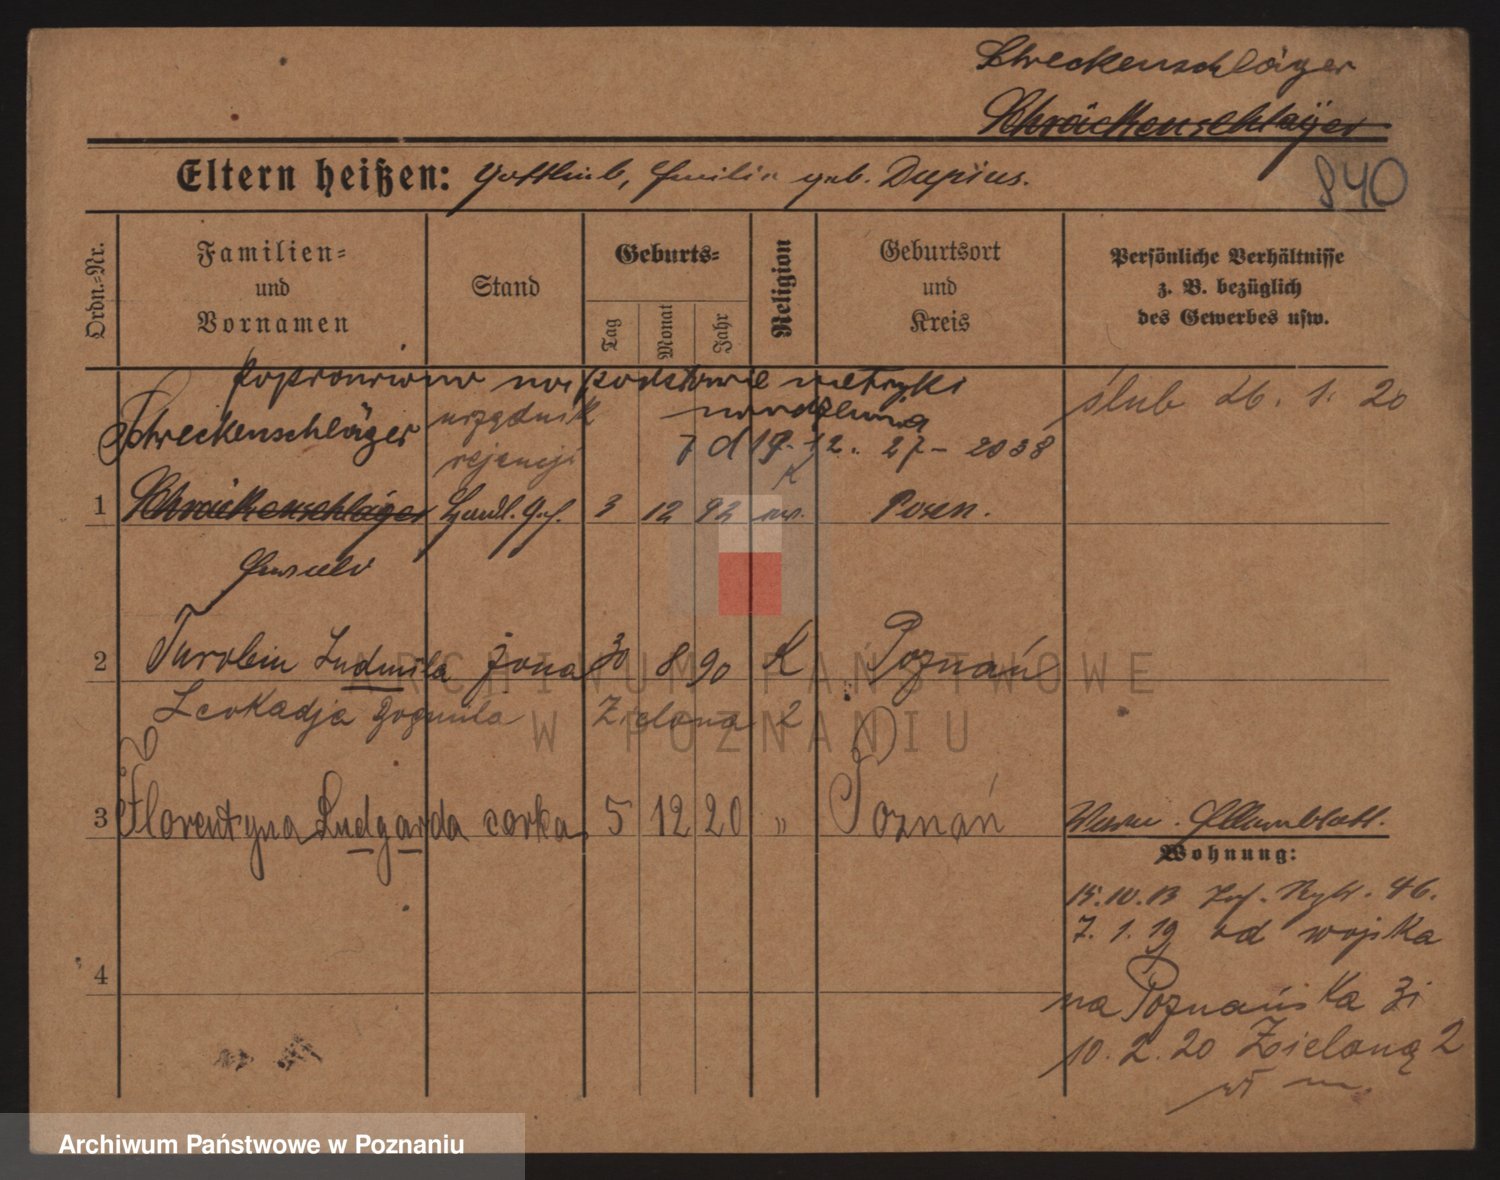 Schreckenschläger
Schräckenschläger
840
Eltern heißen: Gottlieb, Emilie geb. Dupius.
Ordn.-Nr.
Familien-
und
Vornamen
Stand
Geburts-
Tag
Monat
Jahr
Religion
Geburtsort
und
Kreis
Persönliche Verhältnisse
z. B. bezüglich
des Gewerbes usw.
poprawiono na podstawie metryki
urodzenia
z d 19. 12. 27 - 2038
Schreckenschläger urzędnik
rejencji
ślub 26. 1. 20
K
1 Schräckenschläger Handl. Geh. 3 12 92 ev. Posen.
2 Turobin Ludmiła żona 30 8 90 K Poznań
Leokadja Bogumiła Zielona 2
3 Florentyna Ludgarda córka 5 12 20 " Poznań
4
Wohnung:
15. 10. 13 46.
7. 1. 19 od wojska
na Poznańska 31
10. 2. 20 Zieloną 2
ARCHIWUM PAŃSTWOWE
W POZNANIU
Archiwum Państwowe w Poznaniu